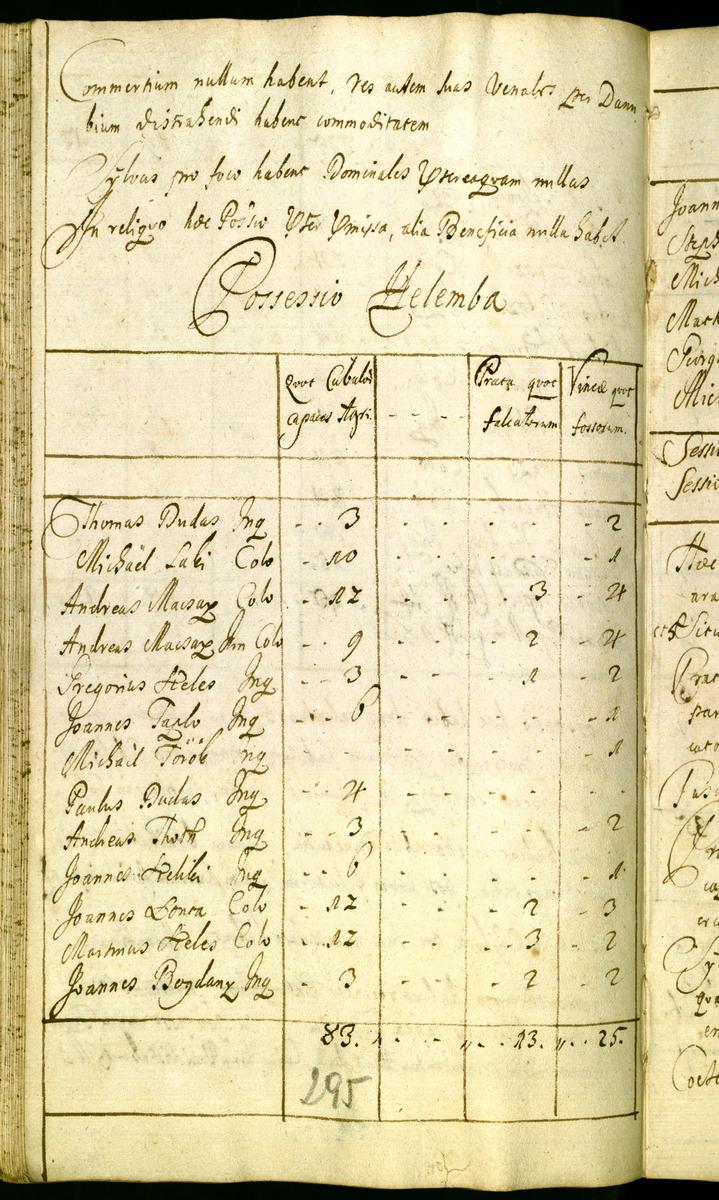 Commertium nullum habent, res autem suas Venales per Danu
bium distrahendi habent commoditatem
Sylvas pro foco habent Dominales Utereaqvam nullas
In reliqvo hæc Possio Uter Umissa, alia Beneficia nulla habet.
Possessio Helemba
Qvot Cubulos capaces Agri. - - - - Prata qvot falcatorum Vineæ qvot fossorum.
Thomas Dudas Inq - - 3 - - - - - 2
Michaël Laki Colo - 10 - - - - - 1
Andreas Macsay Colo - 12 - - - - 3 - 4
Andreas Macsay Jun Colo - - 9 - - - - 2 - 4
Gregorius Heles Inq - - 3 - - - - 1 - 2
Joannes Taxlo Inq - - - 6 - - - - - 1
Michaël Török Inq - - - - - - - - 1
Paulus Dudas Inq - - 4 - - - - - -
Andreas Thoth Inq - - 3 - - - - - 2
Joannes Inq - - 6 - - - - - 1
Joannes Colo - 12 - - - - 2 - 3
Martinus Heles Colo - 12 - - - - 3 - 2
Joannes Bogdany Inq - 3 - - - - 2 - 2
83. „ - - - „ - - 13. „ - - 25.
295
Joann
Steph
Mich
Mart
Georg
Mic
Sessi
Sessio
Hæc
ara
Situ
Prat
par
Pasc